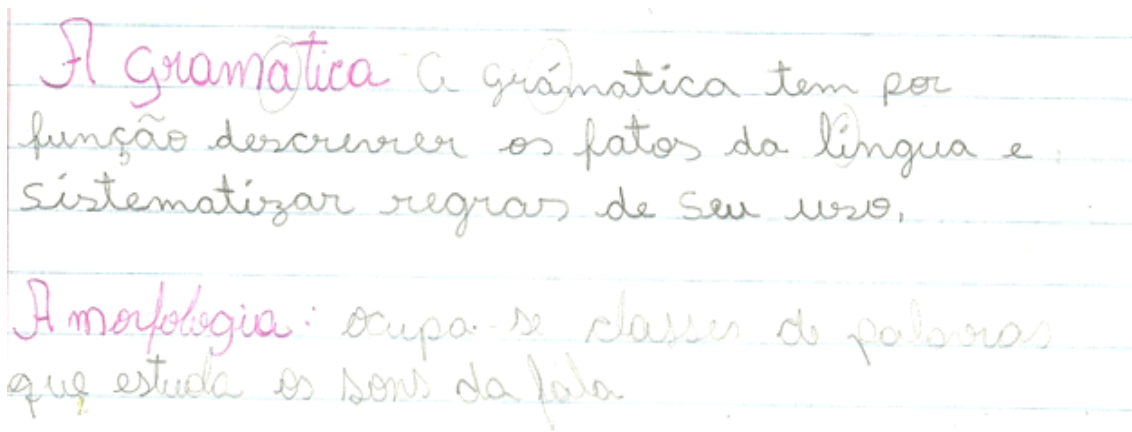 A gramática A grámatica tem por
função descrever os fatos da língua e
sistematizar regras de seu uzo.
A morfologia: ocupa-se classes de palavras
que estuda os sons da fala